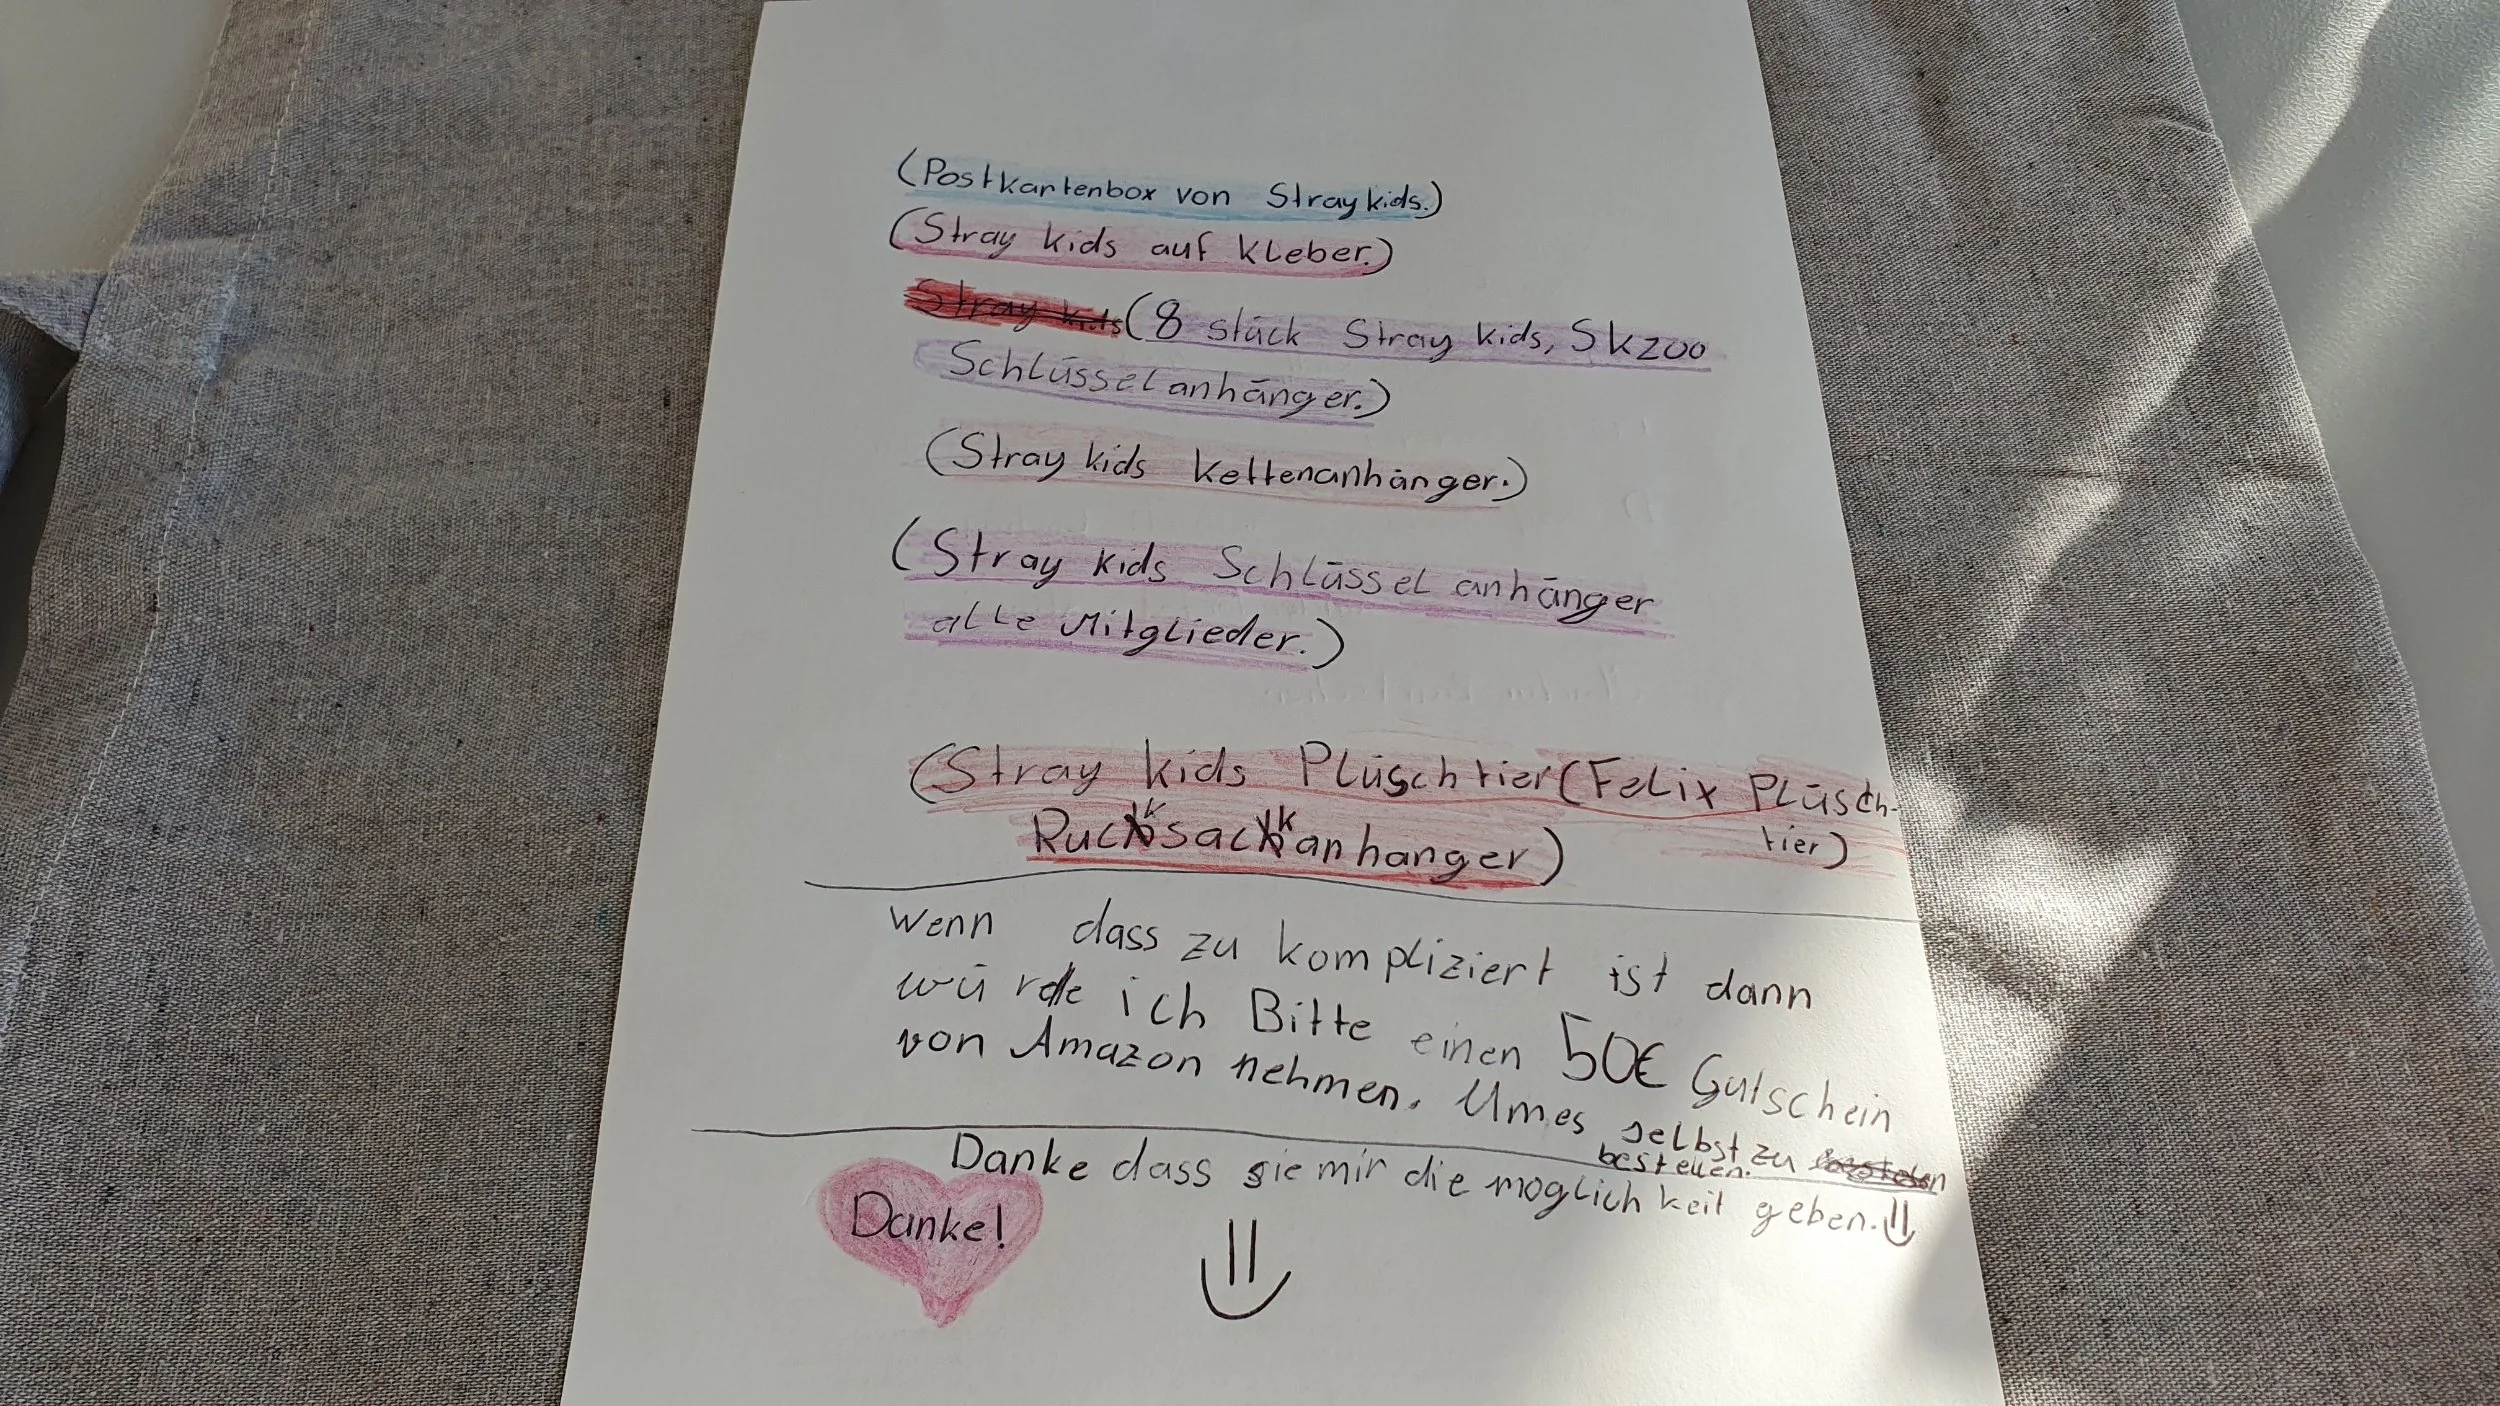 (Postkartenbox von Stray kids.)
(Stray kids auf kleber.)
Stray kids (8 stück Stray kids, Skzoo
Schlüsselanhänger.)
(Stray kids kettenanhänger.)
(Stray kids Schlüssel anhänger
alle Mitglieder.)
(Stray kids Plüschtier (Felix Plüsch-
tier)
Rucksackanhanger)
wenn dass zu kompliziert ist dann
würde ich Bitte einen 50€ Gutschein
von Amazon nehmen. Umes selbst zu
bestellen.
Danke dass sie mir die moglich keit geben.
Danke!